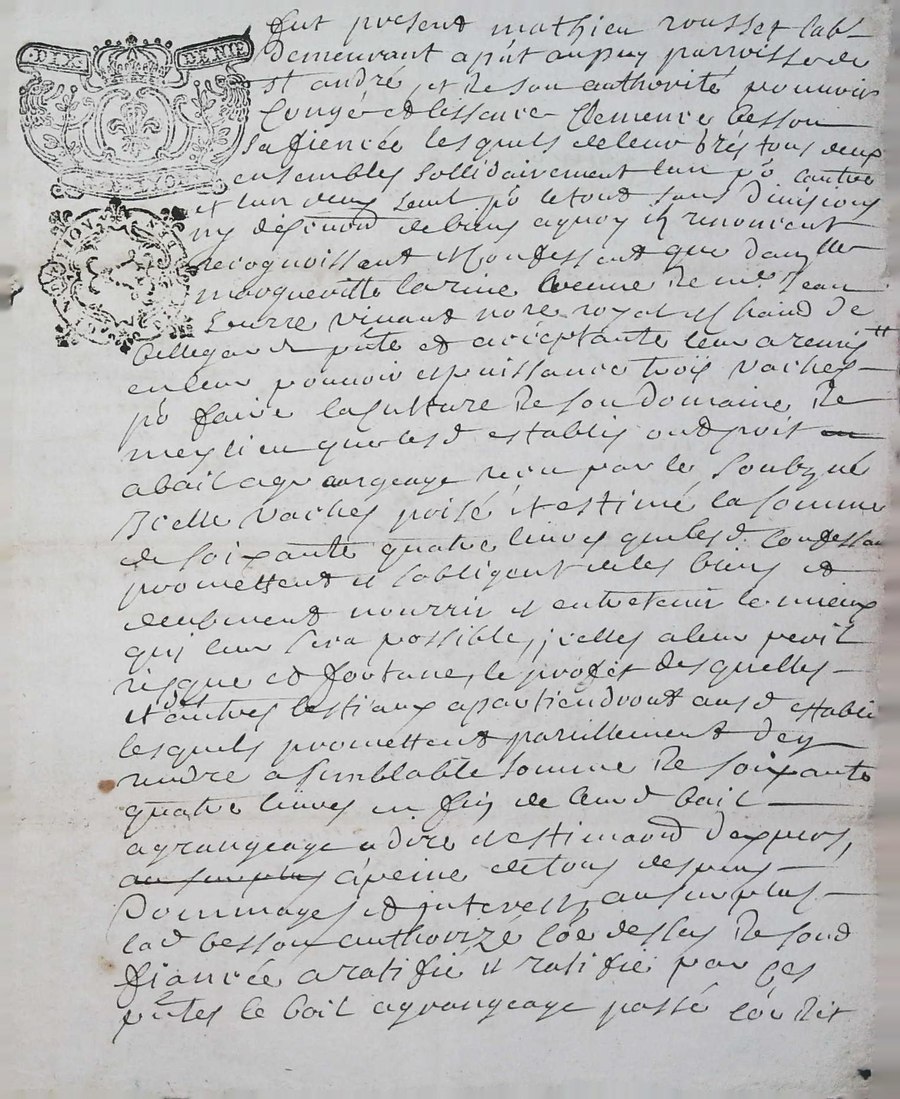 DIX DENIE
G. LYON
fut present mathieu rousset lab
demeurant a pnt au puy parroisse de
st andré, et de son authorité pouvoir
Congé et lissance Clemence besson
sa fiencée lesquels de leur grés tous deux
ensembles sollidairement lun po lautre
et lun deux seul po le tout sans divisions
ny de biens aquoy ils renoncent
recognoissent et Confessent que dam.lle
margueritte larine veufve de me Jean
vivant nore royal et de
bellegarde pnte et acceptante leur a remis
en leur pouvoir et puissance trois vaches
po faire la Culture de son domaine de
meylieu que lesd establis ont prit
abail agrangeage par le soubzné
Icelle vaches prisé et estimé la somme
de soixante quatre livres que lesd Confessan
promettent et sobligent de les bien et
deubment nourrir et entretenir le mieux
quil leur sera possible, icelles a leur peril
risque et fortune, le profit desquelles
et autres bestiaux apartiendront ausd establi
lesquels promettent pareillement den
rendre a semblable somme de soixante
quatre livres en fin de leurd bail
agrangeage a dire et estimaon dexpers,
au surplus a peine de tous despens
dommages et interest, au surplus
lad besson authorize coe dessus de sond
fiancée a ratifié et ratifie par ces
pntes le bail agrangeage passé